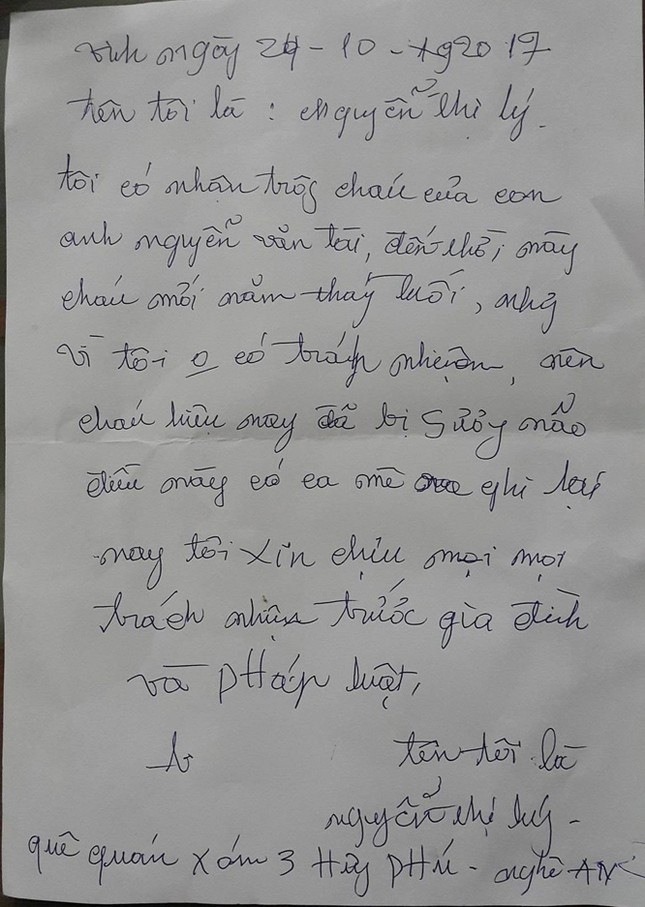 Vinh ngày 24 - 10 - 2017
tên tôi là : Nguyễn thị lý.
tôi có nhận trôg cháu của con
anh nguyễn văn tài, đến thời này
cháu mới năm tháy tuổi, nhg
vì tôi o có trách nhiệm, nên
cháu hiện nay đã bị sưng não
điều này có ca mê ghi lại
nay tôi xin chịu mọi mọi
trách nhiệm trước gia đình
và pHáp luật,
tên tôi là
nguyễn thị lý -
quê quán xóm 3 Hưg pHú - nghệ AN